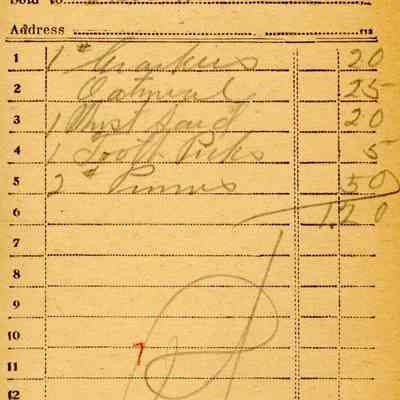 Sold to
Address
1 1 # Crackers 20
2 Oatmeal 25
3 1 Must Sard 20
4 1 Tooth Picks 5
5 2 # Prunes 50
6 1.20
7
8
9
10
7
11
12